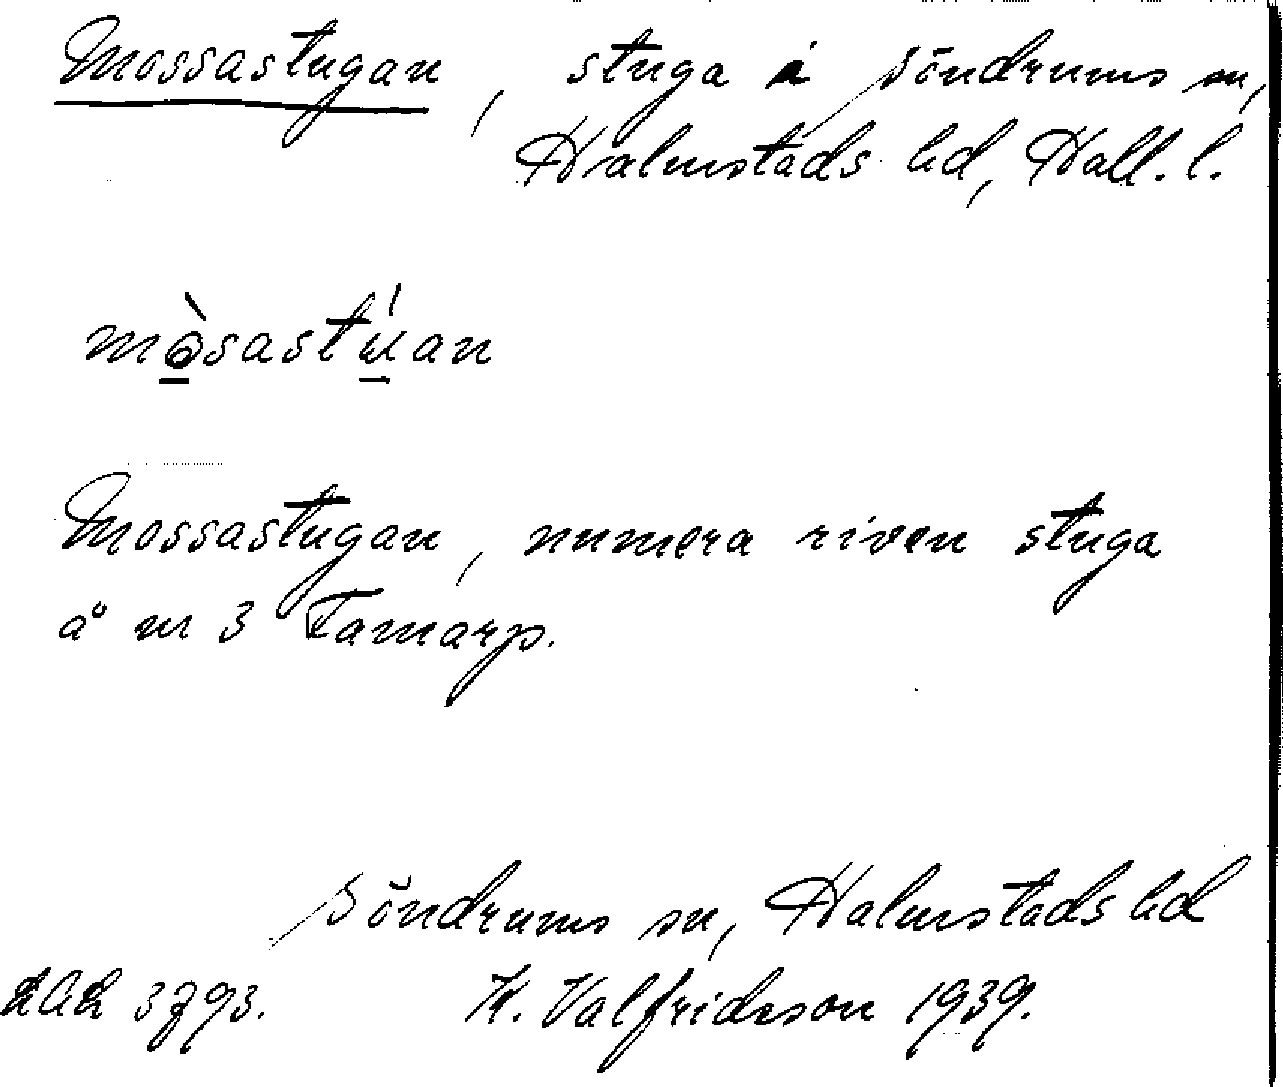 Mossastugan, stuga i Söndrums sn,
Halmstads hd, Hall. l.
mòsastúan
Mossastugan, numera riven stuga
å nr 3 Tamarp.
Söndrums sn, Halmstads hd
3793. K. Valfridsson 1939.